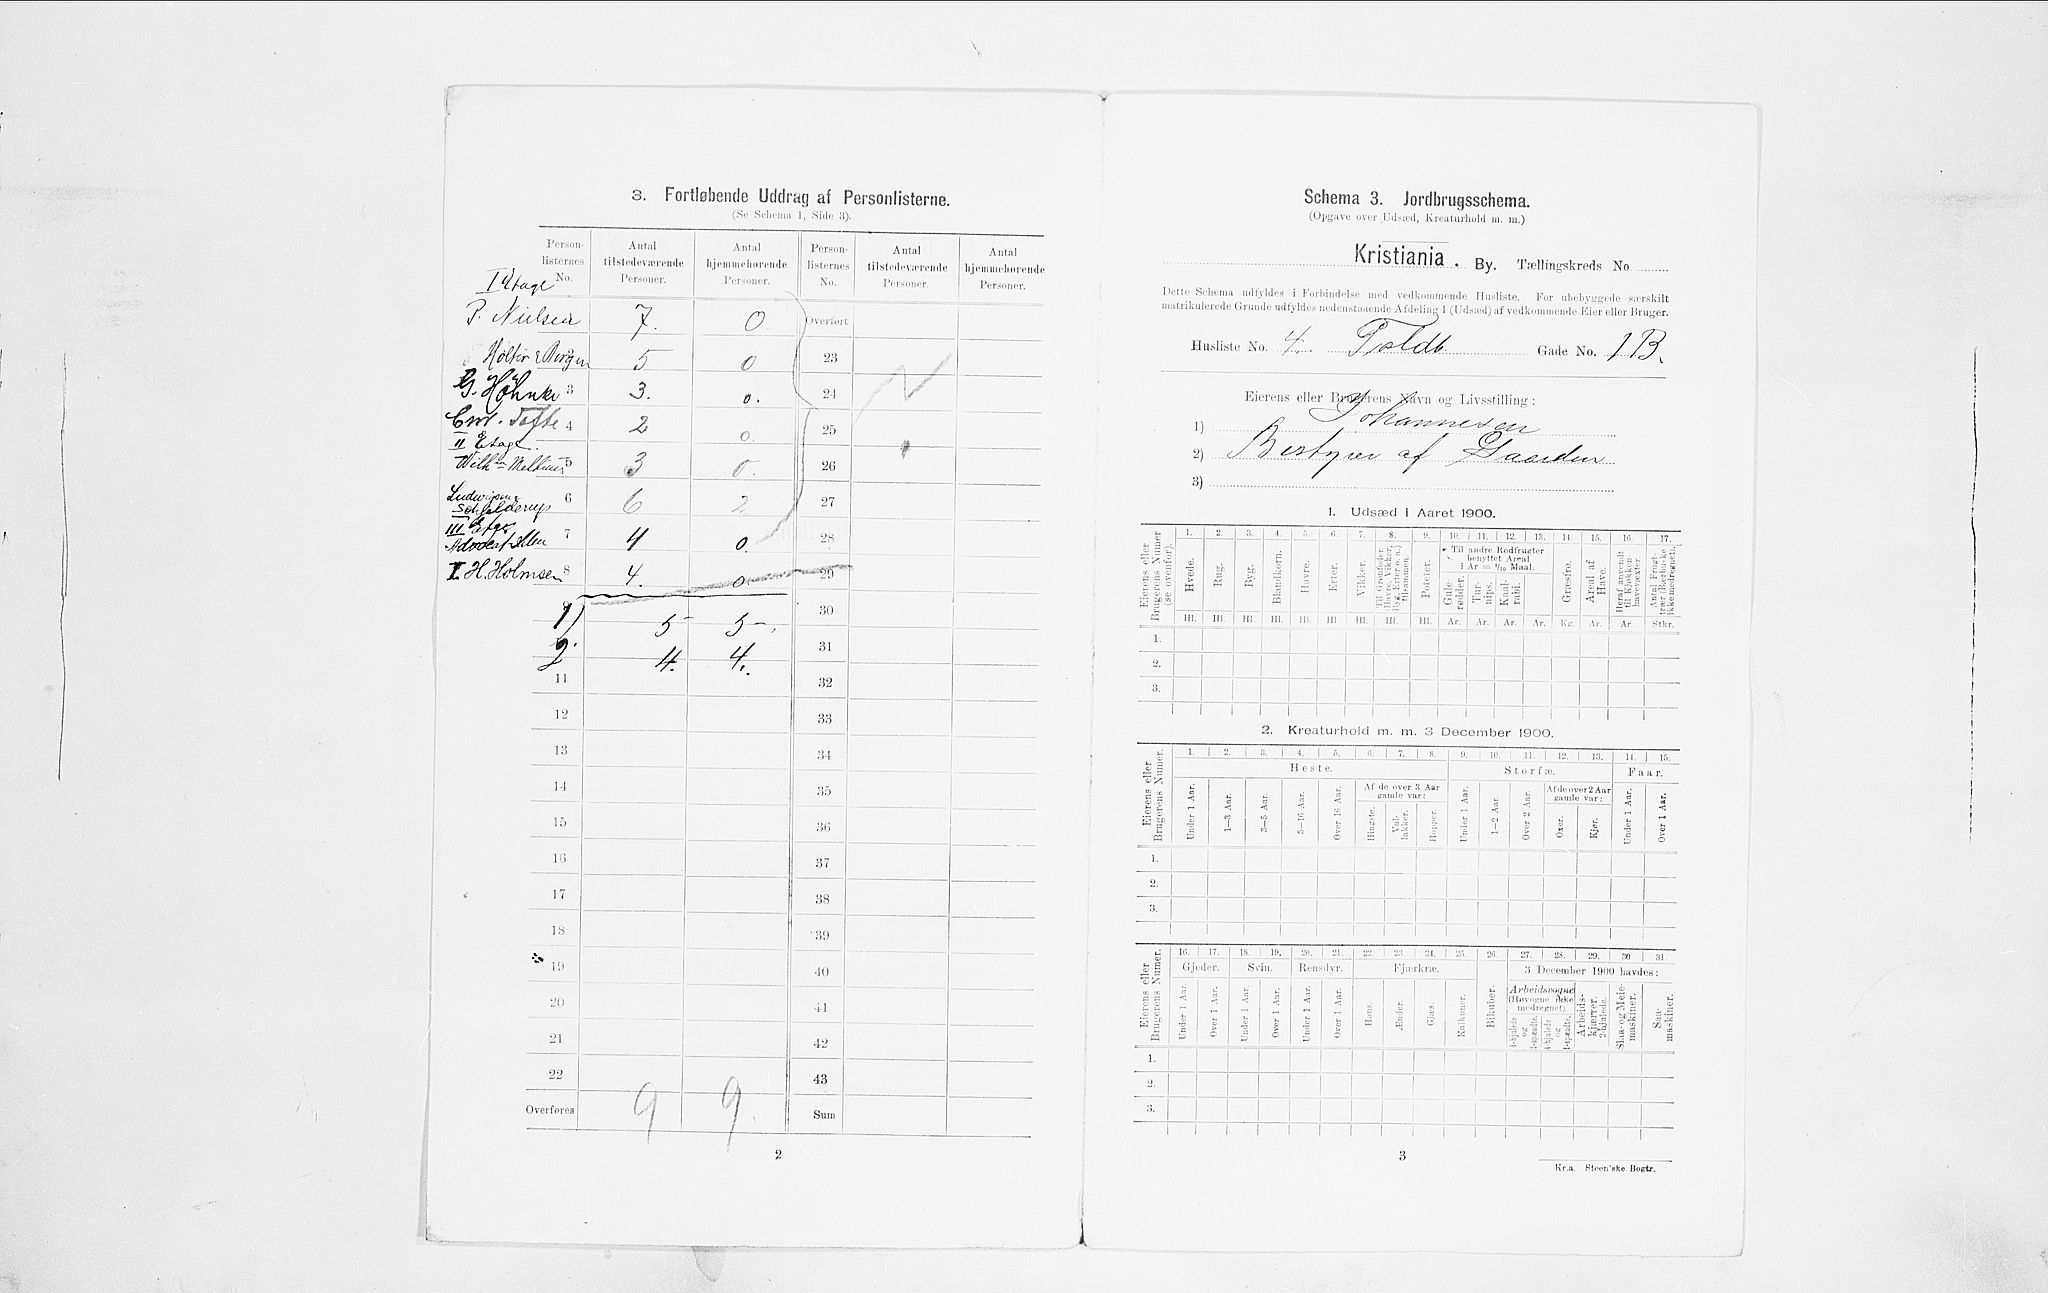 3. Fortløbende Uddrag af Personlisterne.
(Se Schema 1, Side 3).
Person-listernes No. Antal tilstedeværende Personer. Antal hjemmehørende Personer. Person-listernes No. Antal tilstedeværende Personer. Antal hjemmehørende Personer.
I Etage
P. Nielsen 7. 0. Overført
Holter & Borgen 5 0 23
G. Höhnke 3 3. 0. 24
Tofte 4 2 0. 25
II Etage
Wilh m Meltines 5 3 0. 26
Ludwigsen & Schjelderup 6 6 2 27
III Etage
Advocat 7 4 0. 28
I. H. Holmsen 8 4. 0. 29
1) 5 5 30
2. 4. 4. 31
11 32
12 33
13 34
14 35
15 36
16 37
17 38
18 39
19 40
20 41
21 42
22 43
Overføres 9 9. Sum
2
Schema 3. Jordbrugsschema.
(Opgave over Udsæd, Kreaturhold m. m.)
Kristiania. By. Tællingskreds No
Dette Schema udfyldes i Forbindelse med vedkommende Husliste. For ubebyggede særskilt
matrikulerede Grunde udfyldes nedenstaaende Afdeling 1 (Udsæd) af vedkommende Eier eller Bruger.
Husliste No. 4. Toldb Gade No. 1B.
Eierens eller Brugerens Navn og Livsstilling:
1) Johannesen
2) Bestyrer af Gaarden
3)
1. Udsæd i Aaret 1900.
Eierens eller Brugerens Numer (se ovenfor).
1. 2. 3. 4. 5. 6. 7. 8. 9. 10. 11. 12. 13. 14. 15. 16. 17.
Til andre Rodfrugter benyttet Areal i Ar = 1/10 Maal.
Hvede. Rug. Byg. Blandkorn. Havre. Erter. Vikker. Til Grønfoder Havre, Vikker, Byg, Erter o. a.) tilsammen. Poteter. Gule-rødder. Tur-nips. Kaal-rabi. Græsfrø. Areal af Have. Heraf anvendt til Kjøkken-havevæxter. Antal Frugt-trær (Bærbuske ikke medregnet).
Hl. Hl. Hl. Hl. Hl. Hl. Hl. Hl. Hl. Ar. Ar. Ar. Ar. Kg. Ar. Ar. Stkr.
1.
2.
3.
2. Kreaturhold m. m. 3 December 1900.
Eierens eller Brugerens Numer.
1. 2. 3. 4. 5. 6. 7. 8. 9. 10. 11. 12. 13. 14. 15.
Heste. Storfæ. Faar.
Af de over 3 Aar gamle var: Af de over 2 Aar gamle var:
Under 1 Aar. 1—3 Aar. 3—5 Aar. 5—16 Aar. Over 16 Aar. Hingste. Val-lakker. Hopper. Under 1 Aar. 1—2 Aar. Over 2 Aar. Oxer. Kjør. Under 1 Aar. Over 1 Aar.
1.
2.
3.
Eierens eller Brugerens Numer.
16. 17. 18. 19. 20. 21. 22. 23. 24. 25. 26. 27. 28. 29. 30 31.
Gjeder. Svin. Rensdyr. Fjærkræ. 3 December 1900 havdes:
Arbeidsvogne (Høvogne ikke medregnet).
Under 1 Aar. Over 1 Aar. Under 1 Aar. Over 1 Aar. Under 1 Aar. Over 1 Aar. Høns. Ænder. Gjæs. Kalkuner. Bikuber. 4-hjulede og 1-spændte. 4-hjulede og 1-spændte. Arbeids-kjærrer. 2-hjulede. Slaa- og Meie-maskiner. Saa-maskiner.
1.
2.
3.
3
Kr.a. Steen'ske Bogtr.